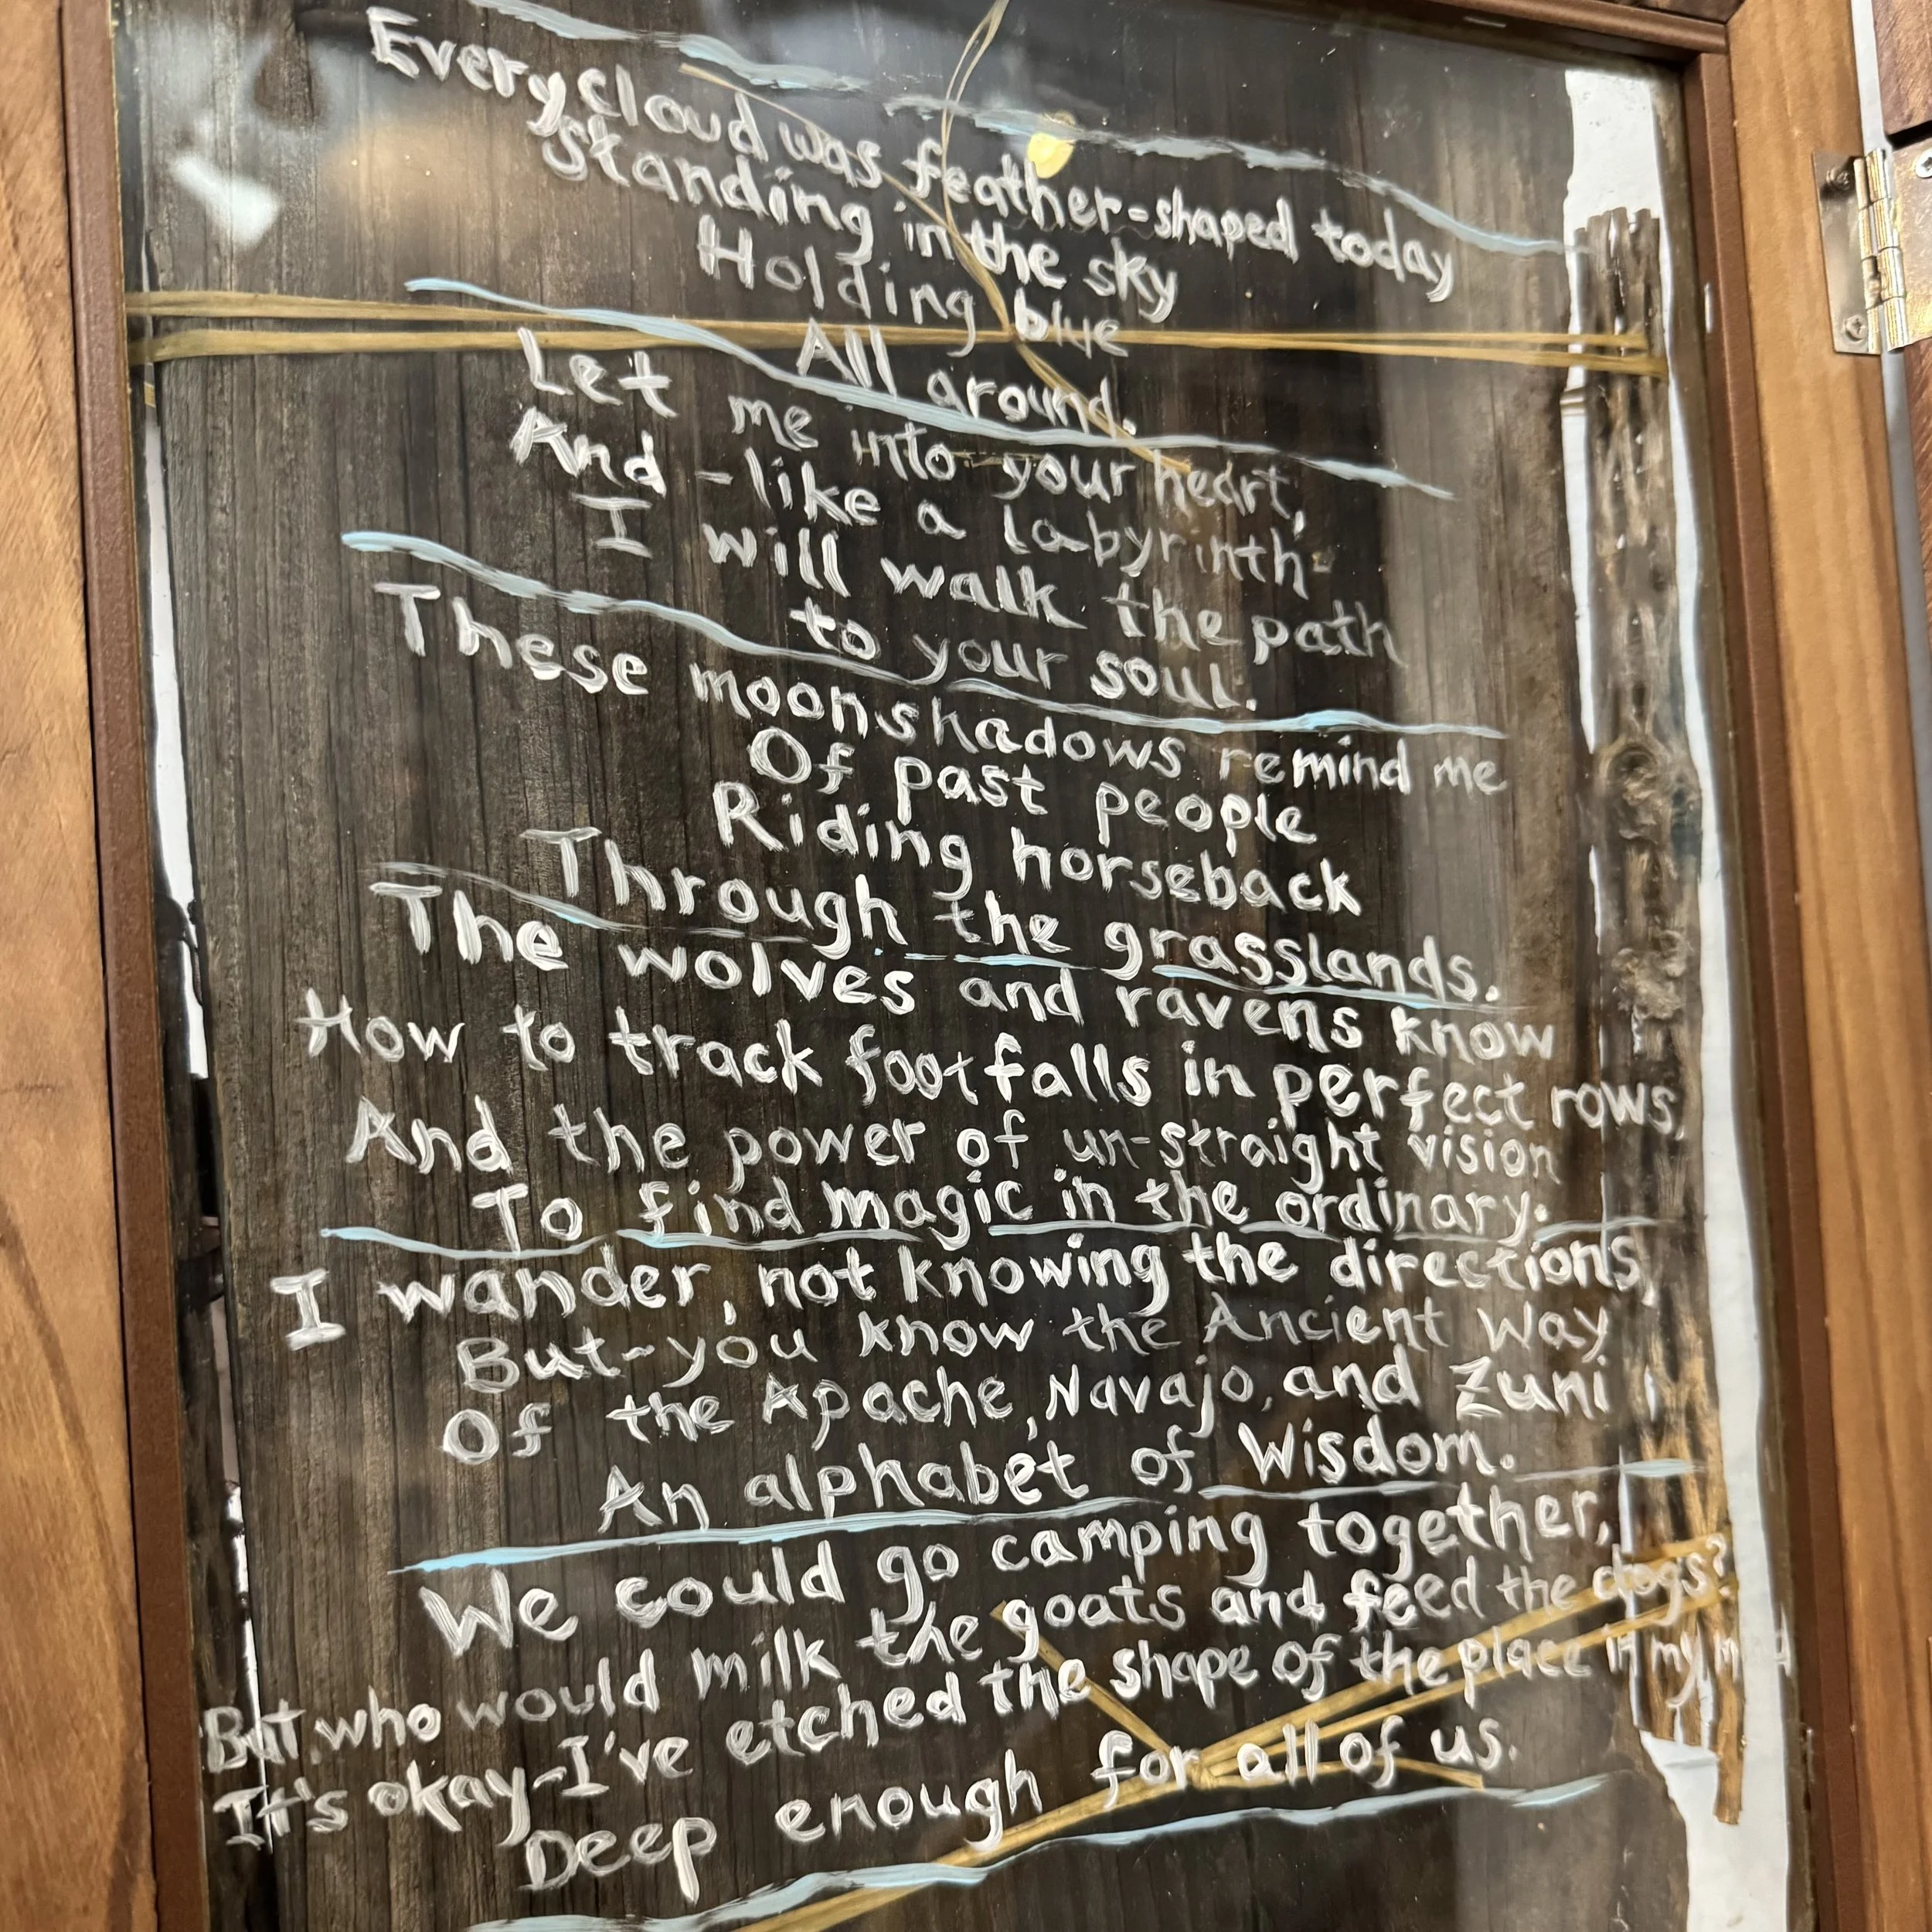 Every cloud was feather-shaped today
standing in the sky
Holding blue
All around.
Let me into your heart,
And - like a labyrinth-
I will walk the path
to your soul.
These moonshadows remind me
Of past people
Riding horseback
Through the grasslands.
The wolves and ravens know
How to track footfalls in perfect rows,
And the power of un-straight vision
To find magic in the ordinary.
I wander, not knowing the directions,
But-you know the Ancient Way
Of the Apache, Navajo, and Zuni
An alphabet of Wisdom.
We could go camping together,
But who would milk the goats and feed the dogs?
It's okay-I've etched the shape of the place in my mind
Deep enough for all of us.